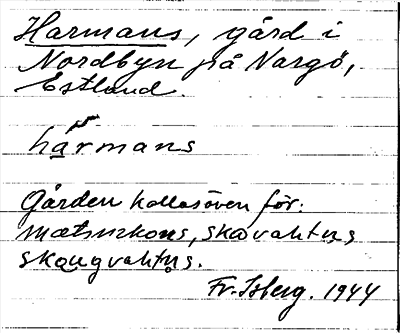 Harmans, gård i
Nordbyn på Nargö,
Estland.
harmans
Gården kallas även för:
mætsнkons, skavaktus
skaugvaktus.
Fr. Isberg. 1944